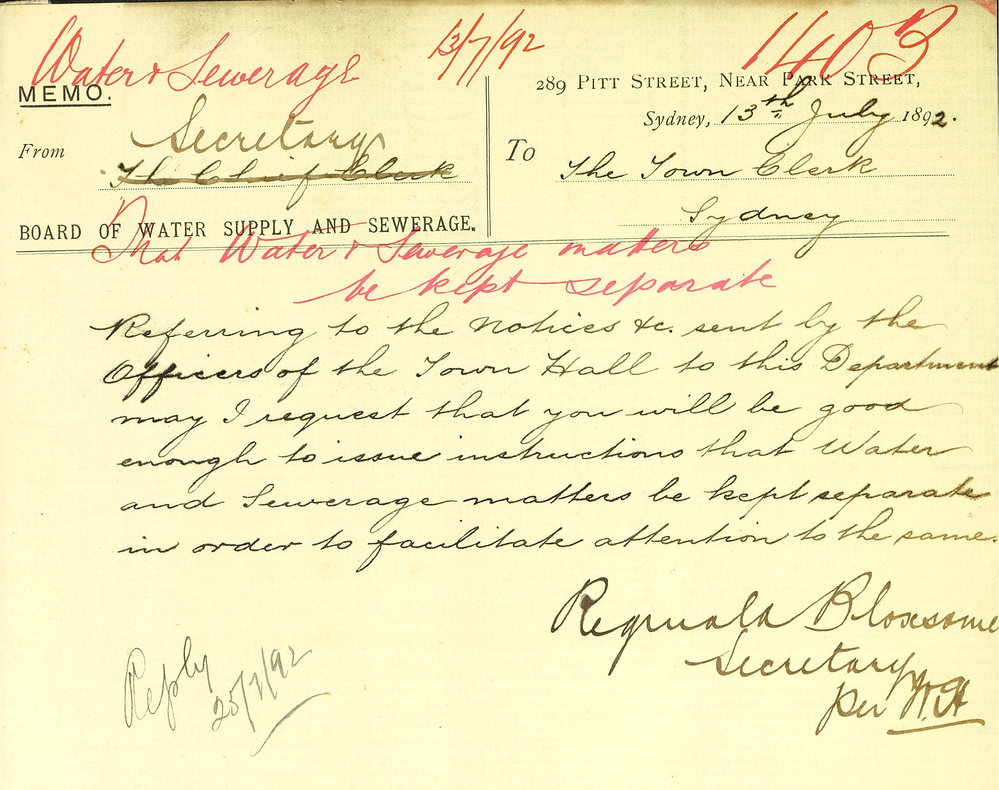 Water & Sewerage
13/7/92
1403
MEMO.
289 PITT STREET, NEAR PARK STREET,
Sydney, 13th July 1892.
From Secretary
The Chief Clerk
To The Town Clerk
Sydney
BOARD OF WATER SUPPLY AND SEWERAGE.
That Water & Sewerage matters
be kept separate
Referring to the Notices &c. sent by the
Officers of the Town Hall to this Department
may I request that you will be good
enough to issue instructions that Water
and Sewerage matters be kept separate
in order to facilitate attention to the same.
Reginald Bloxsome
Secretary
per W.H
Reply
25/7/92